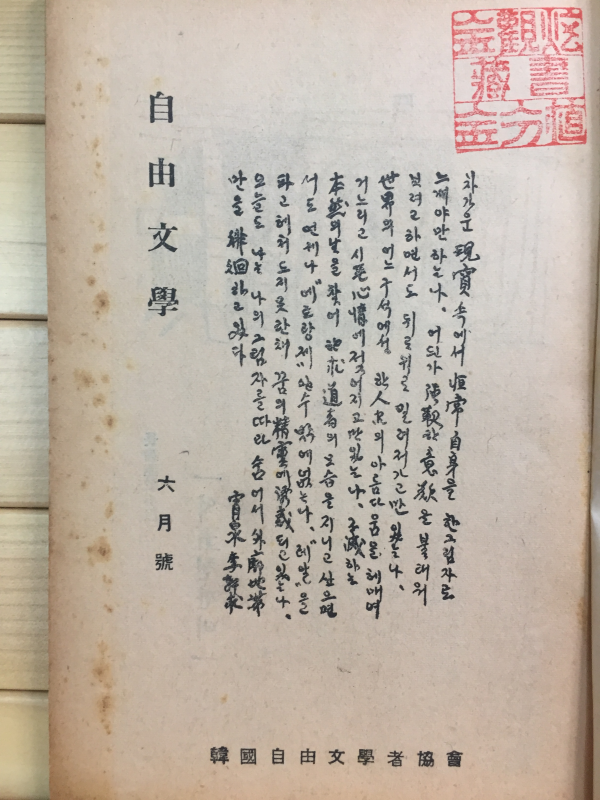 차가운 現實 속에서 恒常 自身을 한그림자로
느껴야만 하는 나. 어딘가 强靭한 意欲을 불태워
보려고하면서도 뒤로뒤로 밀려저가고만 있는 나.
世界의 어느 구석에서 한人間의 아름다움을 헤매며
거느리고 시픈 心情에 젖어지고만 있는 나. 不滅하는
本然의 나를 찾어 求道者의 모습을 지니고 싶으면
서도 언제나 "에트랑제" 일수 밖에 없는 나. "레알"을
파고 헤처 도지못한채 꿈의 精靈에 되고 있는 나.
오늘도 나는 나의 그림자를 따라 숨어서 外廓地帶
만을 徘徊하고 있다
宵泉 李軒求
自由文學
六月號
韓國自由文學者協會